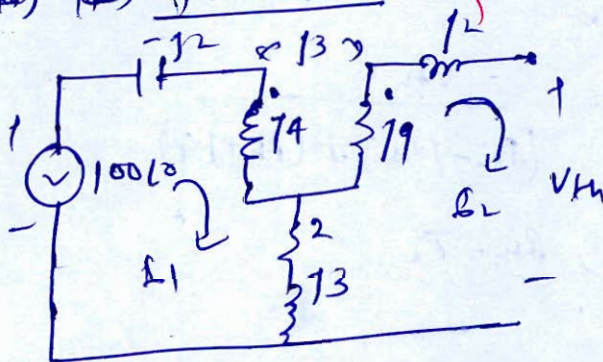 -j2 j3 j2
+ +
j4 j9
100∠0 I1 I2 VTh
2
- -
j3